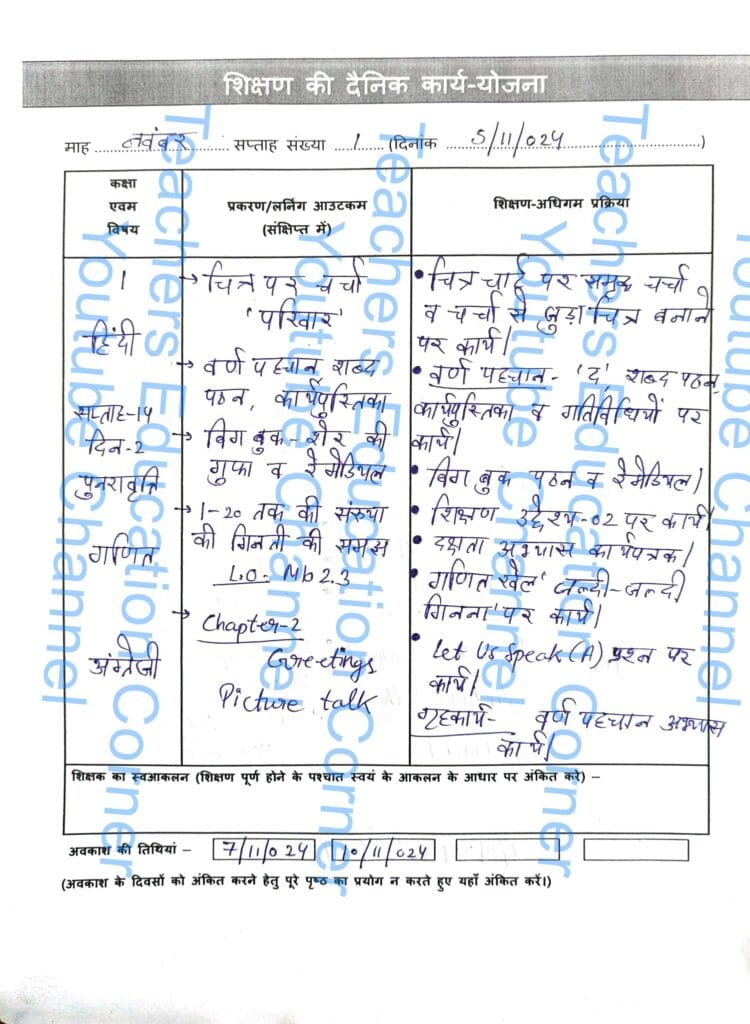 शिक्षण की दैनिक कार्य-योजना
माह नवंबर सप्ताह संख्या 1 (दिनांक 5/11/024)
कक्षा
एवम
विषय
प्रकरण/लर्निंग आउटकम
(संक्षिप्त में)
शिक्षण-अधिगम प्रक्रिया
1
हिंदी
सप्ताह-14
दिन-2
पुनरावृत्ति
गणित
अंग्रेजी
→ चित्र पर चर्चा
'परिवार'
→ वर्ण पहचान, शब्द
पठन, कार्यपुस्तिका
→ बिग बुक - शेर की
गुफा व रेमेडियल
→ 1-20 तक की संख्या
की गिनती की समझ
L.O- Mb 2.3
→ Chapter-2
Greetings
Picture talk
• चित्र चार्ट पर समूह चर्चा
व चर्चा से जुड़ा चित्र बनाने
पर कार्य।
• वर्ण पहचान- 'द', शब्द पठन,
कार्यपुस्तिका व गतिविधियों पर
कार्य।
• बिग बुक पठन व रेमेडियल।
• शिक्षण उद्देश्य-02 पर कार्य।
• दक्षता अभ्यास कार्यपत्रक।
• गणित खेल 'जल्दी-जल्दी
गिनना' पर कार्य।
• Let Us Speak (A) प्रश्न पर
कार्य।
गृहकार्य- वर्ण पहचान अभ्यास
कार्य।
शिक्षक का स्वआकलन (शिक्षण पूर्ण होने के पश्चात स्वयं के आकलन के आधार पर अंकित करें) –
अवकाश की तिथियां – 7/11/024 10/11/024
(अवकाश के दिवसों को अंकित करने हेतु पूरे पृष्ठ का प्रयोग न करते हुए यहाँ अंकित करें।)
Teachers Education Corner
Youtube Channel
Teachers Education Corner
Youtube Channel
Teachers Education Corner
Youtube Channel